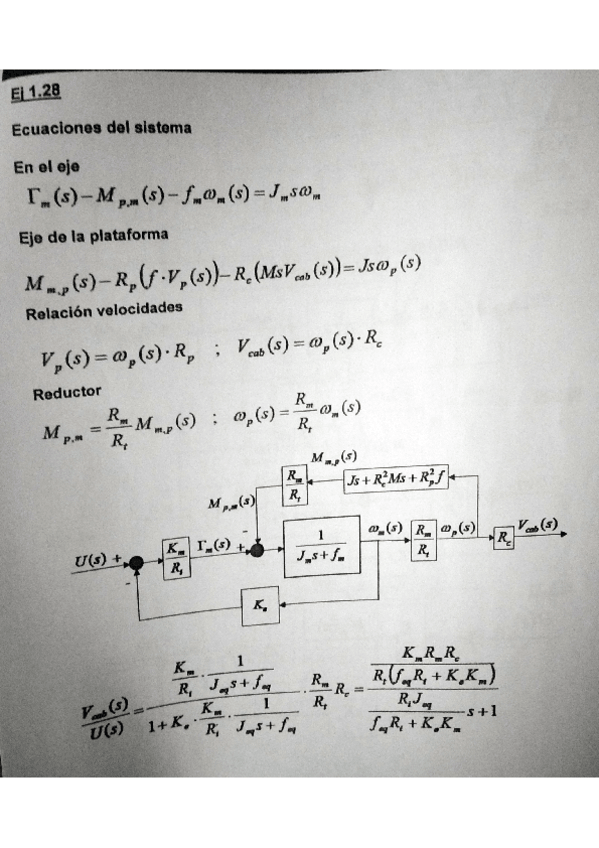 Ej 1.28
Ecuaciones del sistema
En el eje
Γ_m(s) − M_{p,m}(s) − f_m ω_m(s) = J_m s ω_m
Eje de la plataforma
M_{m,p}(s) − R_p(f · V_p(s)) − R_c(MsV_{cab}(s)) = Jsω_p(s)
Relación velocidades
V_p(s) = ω_p(s) · R_p ; V_{cab}(s) = ω_p(s) · R_c
Reductor
M_{p,m} = R_m/R_t M_{m,p}(s) ; ω_p(s) = R_m/R_t ω_m(s)
M_{m,p}(s)
R_m/R_t
Js + R_c^2 Ms + R_p^2 f
M_{p,m}(s)
-
U(s) +
K_m/R_i
Γ_m(s) +
1/(J_m s + f_m)
ω_m(s)
R_m/R_t
ω_p(s)
R_c
V_{cab}(s)
-
K_e
V_{cab}(s)/U(s) = (K_m/R_i · 1/(J_{eq}s + f_{eq}))/(1 + K_e · K_m/R_i · 1/(J_{eq}s + f_{eq})) · R_m/R_t R_c = (K_m R_m R_c/(R_t(f_{eq}R_i + K_e K_m)))/(R_i J_{eq}/(f_{eq}R_i + K_e K_m) s + 1)